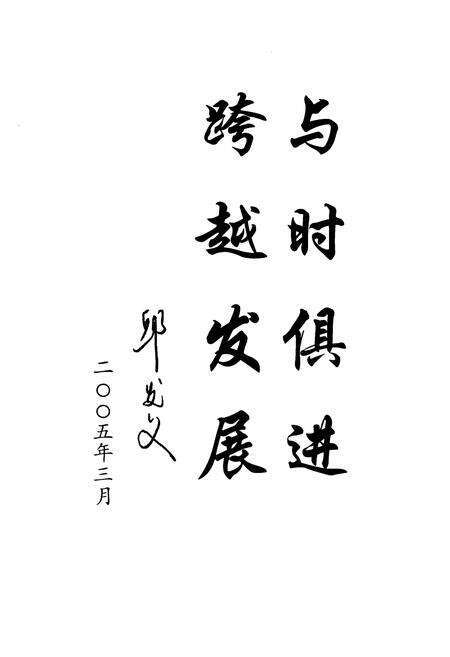 与时俱进
跨越发展
邱发文
二〇〇五年三月